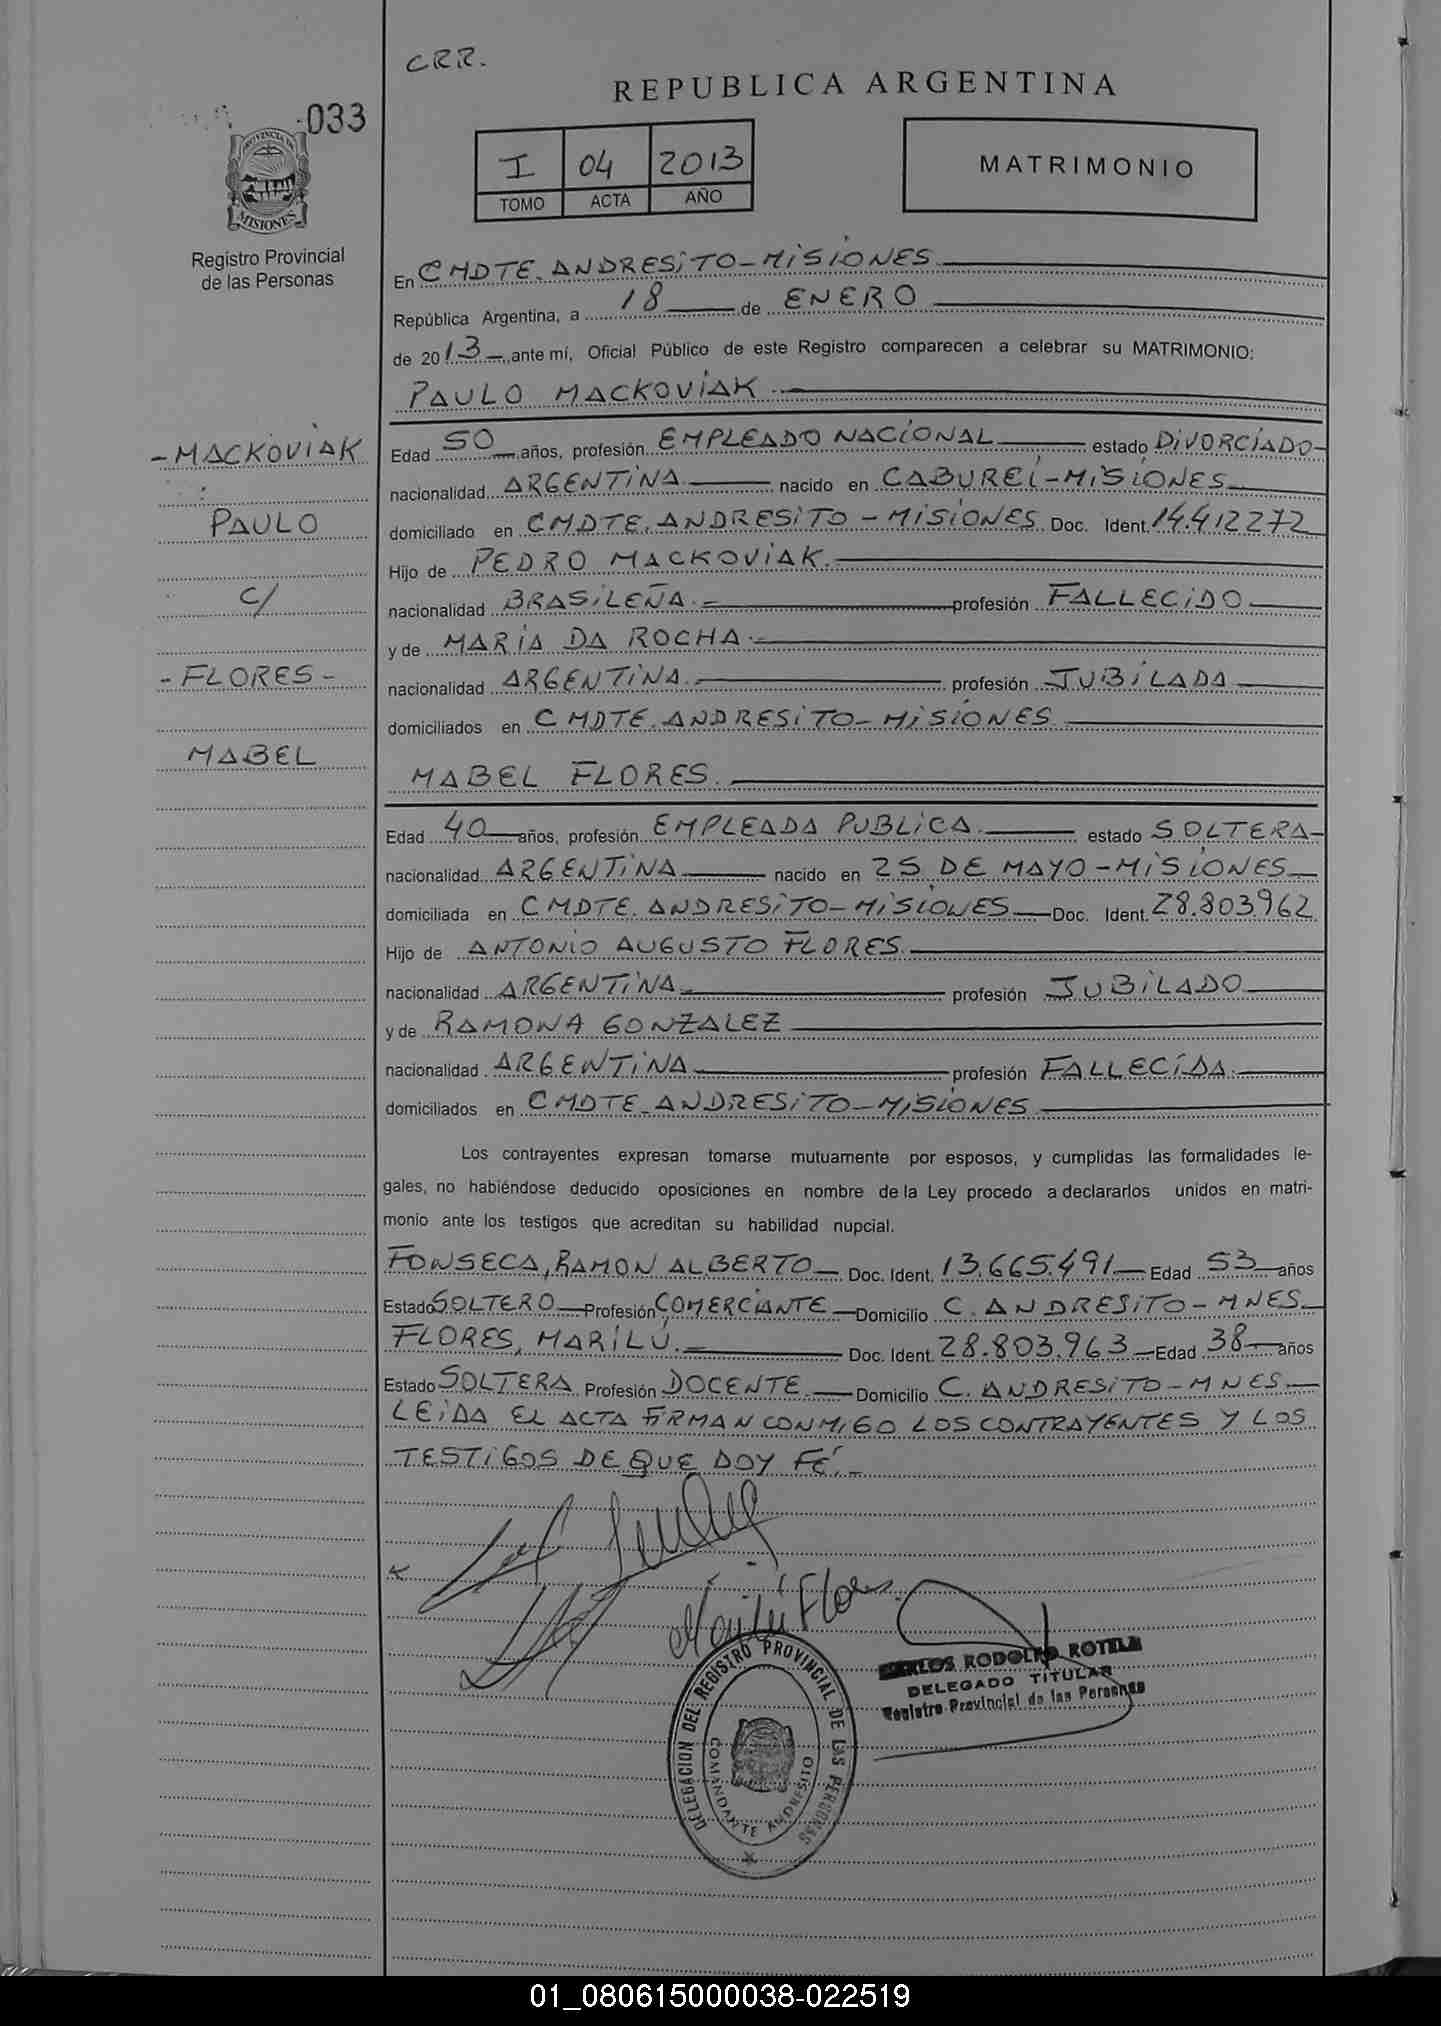 CRR.
REPUBLICA ARGENTINA
033
PROVINCIA DE
MISIONES
Registro Provincial
de las Personas
I 04 2013
TOMO ACTA AÑO
MATRIMONIO
En CMDTE. ANDRESiTO - MiSiONES
República Argentina, a 18 de ENERO
de 2013 ante mí, Oficial Público de este Registro comparecen a celebrar su MATRIMONIO:
PAULO MACKOViAK
Edad 50 años, profesión EMPLEADO NACiONAL estado DiVORCiADO-
nacionalidad ARGENTiNA nacido en CABUREÍ - MiSiONES
domiciliado en CMDTE. ANDRESiTO - MiSiONES Doc. Ident. 14.412272
Hijo de PEDRO MACKOViAK
nacionalidad BRASiLEÑA.- profesión FALLECiDO
y de MARiA DA ROCHA.-
nacionalidad ARGENTiNA profesión JUBiLADA
domiciliados en CMDTE. ANDRESiTO - MiSiONES
MABEL FLORES.
Edad 40 años, profesión EMPLEADA PUBLiCA. estado SOLTERA-
nacionalidad ARGENTiNA nacido en 25 DE MAYO - MiSiONES
domiciliada en CMDTE. ANDRESiTO - MiSiONES Doc. Ident. 28.803.962
Hijo de ANTONiO AUGUSTO FLORES.
nacionalidad ARGENTiNA profesión JUBiLADO
y de RAMONA GONZALEZ
nacionalidad ARGENTiNA profesión FALLECiDA.
domiciliados en CMDTE. ANDRESiTO - MiSiONES
Los contrayentes expresan tomarse mutuamente por esposos, y cumplidas las formalidades le-
gales, no habiéndose deducido oposiciones en nombre de la Ley procedo a declararlos unidos en matri-
monio ante los testigos que acreditan su habilidad nupcial.
FONSECA, RAMON ALBERTO Doc. Ident. 13.665.491 Edad 53 años
Estado SOLTERO Profesión COMERCiANTE Domicilio C. ANDRESiTO - MNES
FLORES, MARiLÚ.- Doc. Ident. 28.803.963 Edad 38 años
Estado SOLTERA Profesión DOCENTE Domicilio C. ANDRESiTO - MNES
LEiDA EL ACTA FiRMAN CONMiGO LOS CONTRAYENTES Y LOS
TESTiGOS DE QUE DOY FÉ.-
-MACKOViAK
PAULO
C/
-FLORES-
MABEL
Marilú Flores
DELEGACION DEL REGISTRO PROVINCIAL DE LAS PERSONAS
COMANDANTE ANDRESITO
CARLOS RODOLFO ROTELA
DELEGADO TITULAR
Registro Provincial de las Personas
01_080615000038-022519